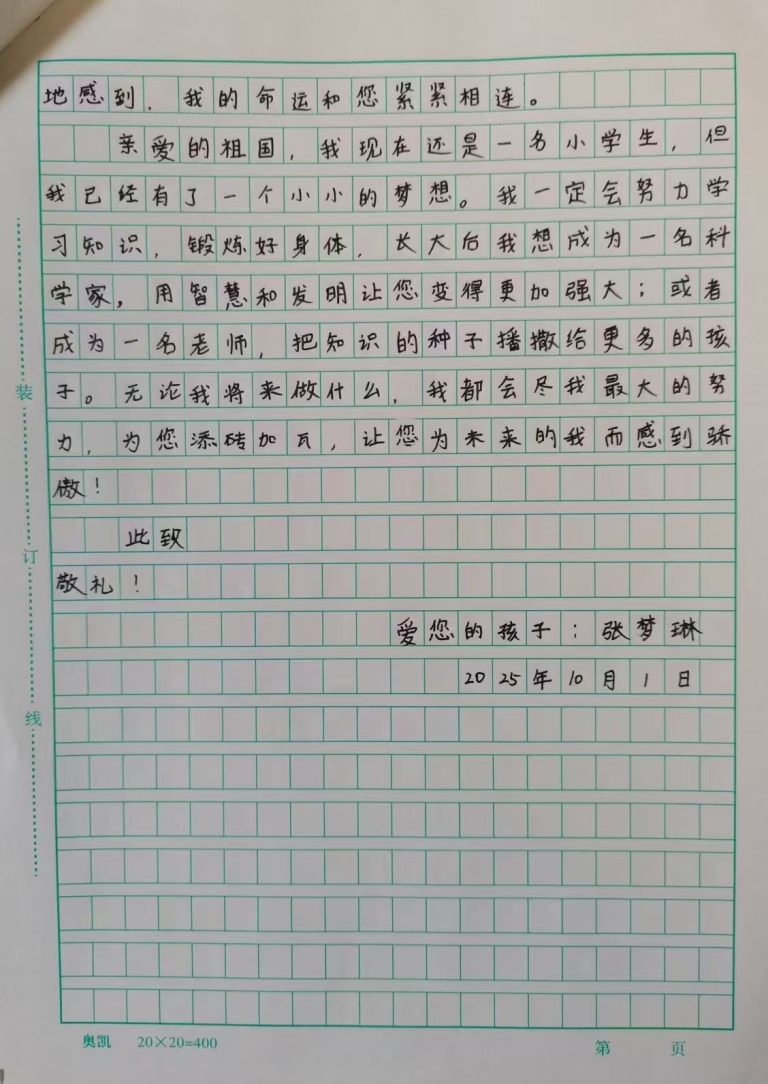 地感到，我的命运和您紧紧相连。
亲爱的祖国，我现在还是一名小学生，但
我已经有了一个小小的梦想。我一定会努力学
习知识，锻炼好身体，长大后我想成为一名科
学家，用智慧和发明让您变得更加强大；或者
成为一名老师，把知识的种子播撒给更多的孩
子。无论我将来做什么，我都会尽我最大的努
力，为您添砖加瓦，让您为未来的我而感到骄
傲！
此致
敬礼！
爱您的孩子：张梦琳
2025年10月1日
装
订
线
奥凯 20×20=400 第 页